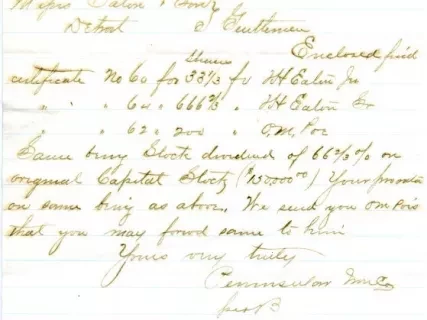 Messrs Eaton & Son
Detroit Gentlemen
Enclosed find
shares
certificate No 60 for 33 1/3 fv TH Eaton Jr
" " 61 " 666 2/3 " TH Eaton Sr
" " 62 " 200 " O.M. Poe
Same being Stock dividend of 66 2/3 % on
original Capital Stock ($150,000.00) Your
on same being as above. We send you OM Poe's
that you may forwd same to him
Yours very truly
Peninsular